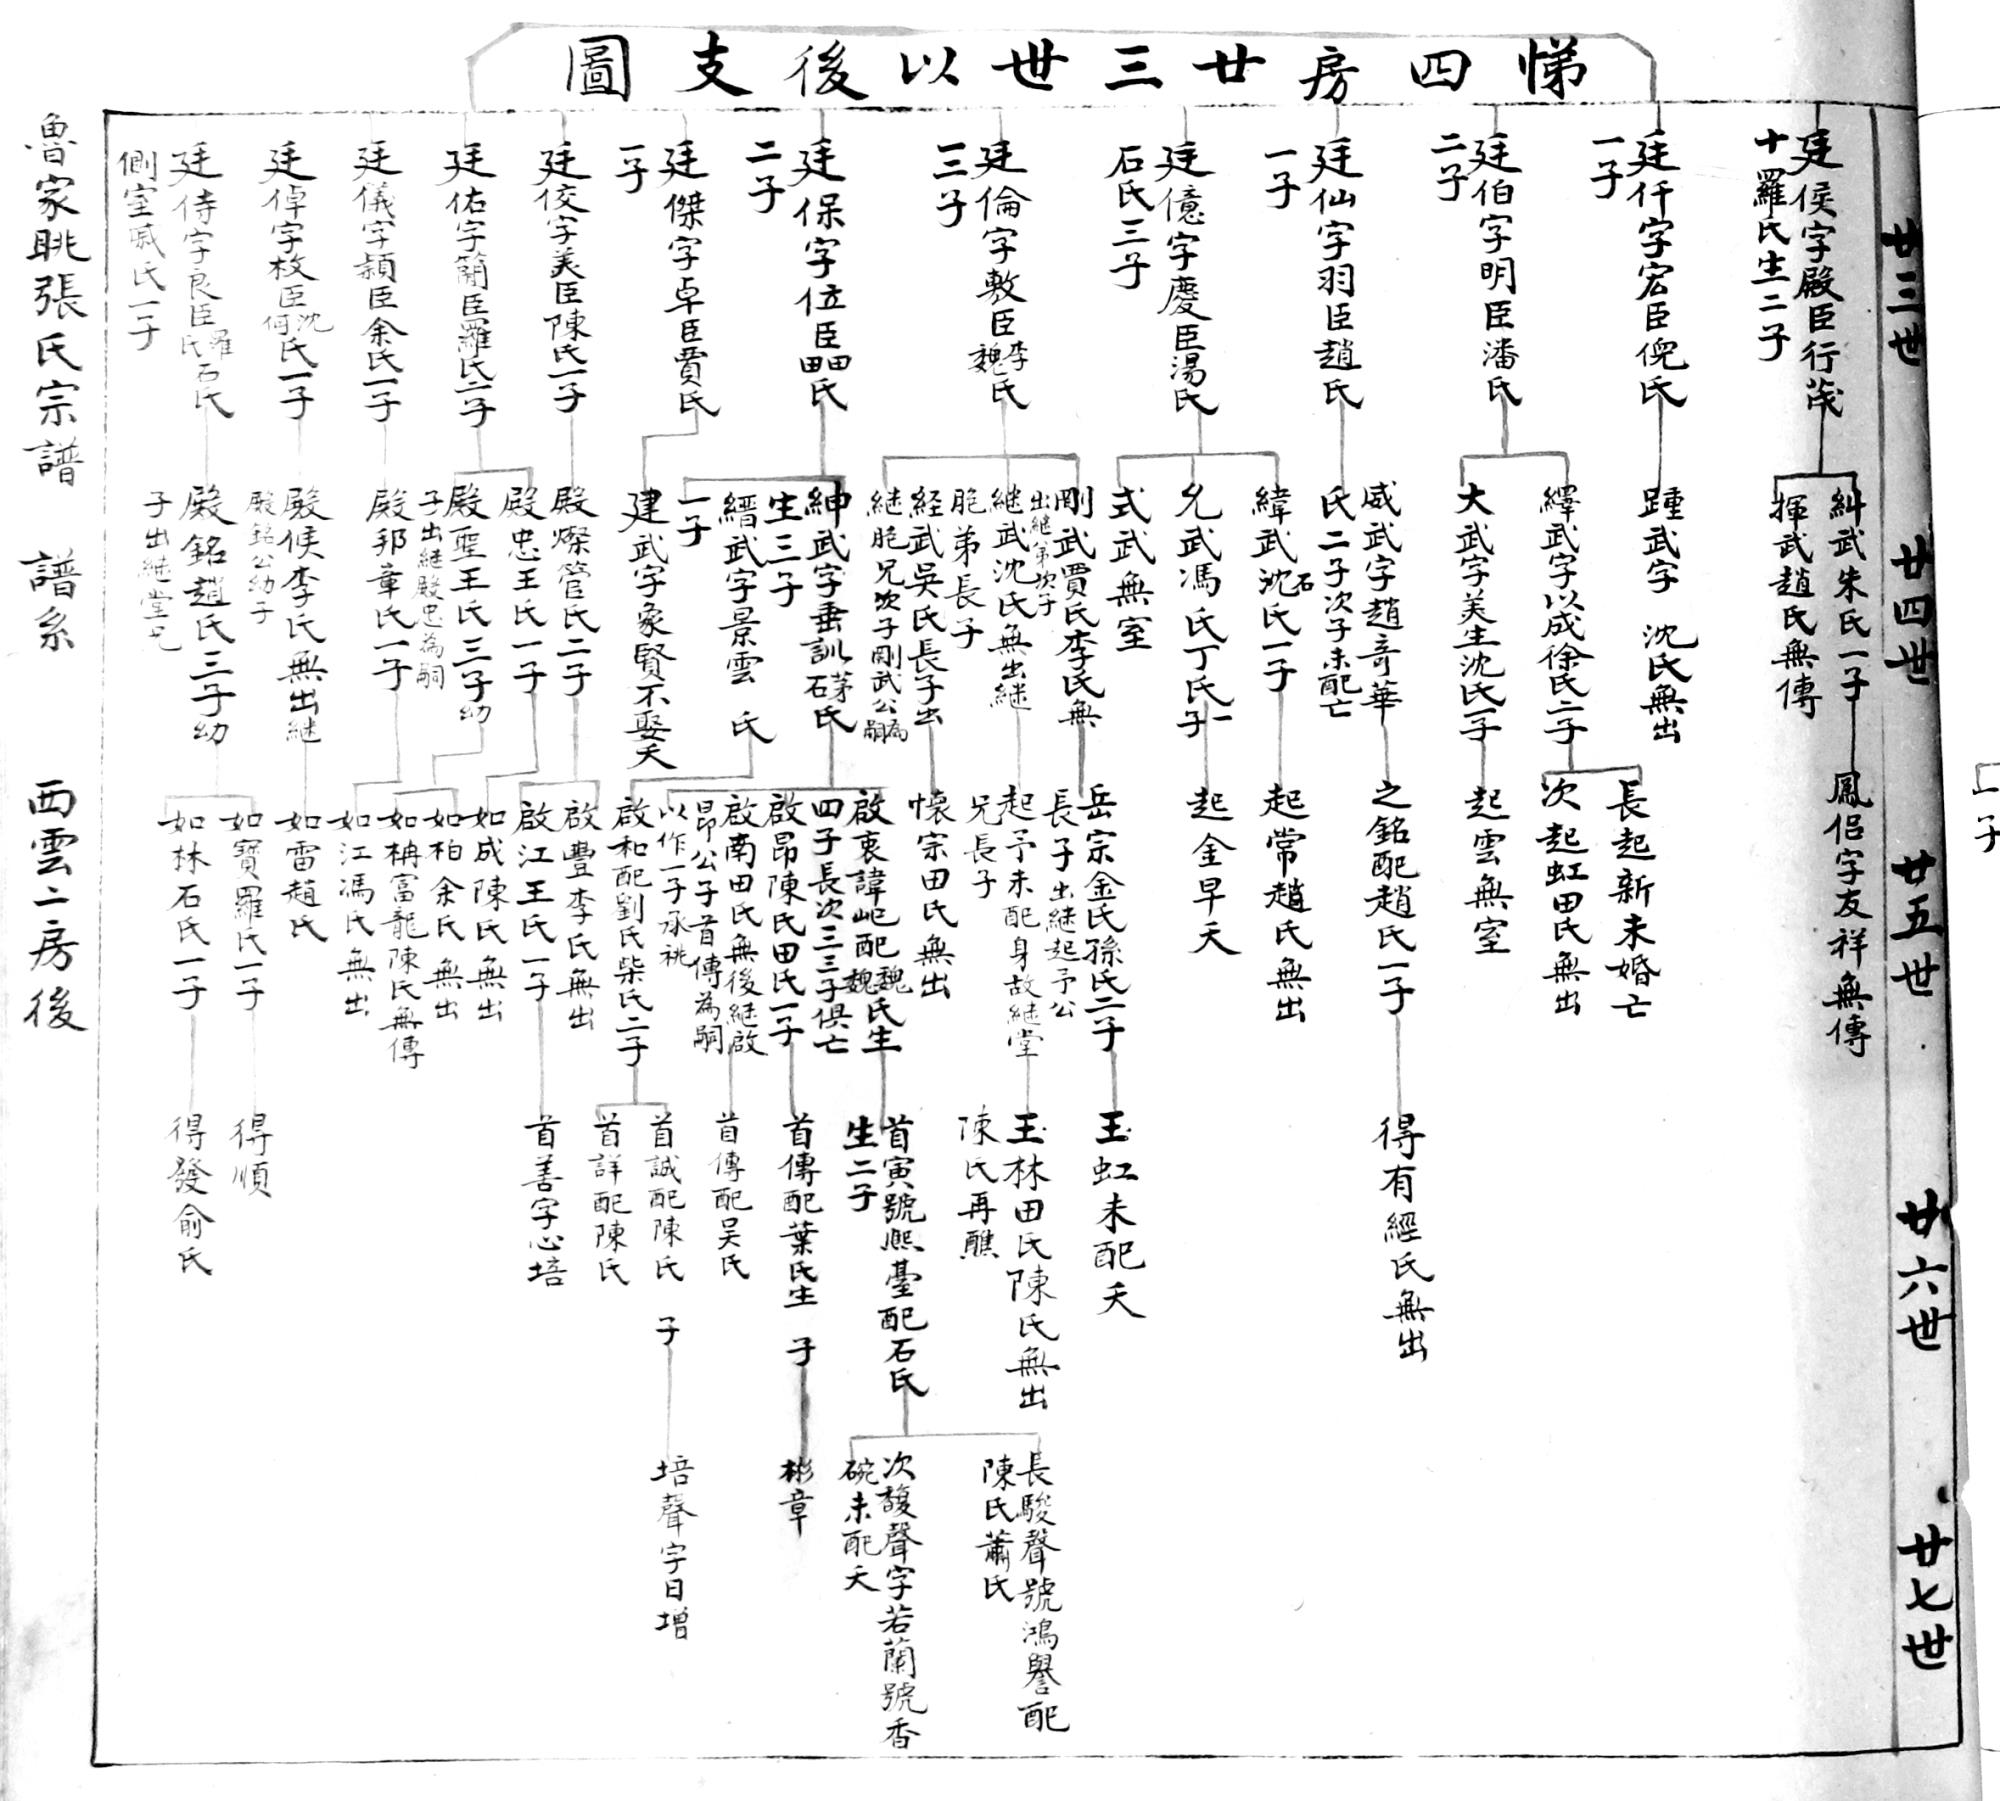 悌四房廿三世以後支圖
廿三世
廷侯字殿臣行茂
十羅氏生二子
廷仟字宏臣倪氏
一子
廷伯字明臣潘氏
二子
廷仙字羽臣趙氏
一子
廷億字慶臣湯氏
石氏三子
廷倫字敷臣李魏氏
三子
廷保字位臣田田氏
二子
廷傑字卓臣賈氏
一子
廷佼字美臣陳氏一子
廷佑字簡臣羅氏二子
廷儀字頴臣余氏一子
廷倬字枚臣沈何氏一子
廷侍字良臣羅氏石氏
側室戚氏一子
廿四世
糾武朱氏一子
揮武趙氏無傳
踵武字 沈氏無出
繹武字以成徐氏二子
大武字美生沈氏一子
威武字趙奇華
氏二子次子未配亡
緯武沈石氏一子
允武馮氏丁氏一子
式武無室
剛武賈氏李氏無
出継弟次子
継武沈氏無出継
胞弟長子
経武吳氏長子出
継胞兄次子剛武公為嗣
紳武字垂訓石茅氏
生三子
縉武字景雲 氏
一子
建武字象賢不娶夭
殿燦管氏二子
殿忠王氏一子
殿聖王氏三子幼
子出継殿忠為嗣
殿邦章氏一子
殿侯李氏無出継
殿銘公幼子
殿銘趙氏三子幼
子出継堂兄
廿五世
鳳侶字友祥無傳
長起新未婚亡
次起虹田氏無出
起雲無室
之銘配趙氏一子
起常趙氏無出
起金早夭
岳宗金氏孫氏二子
長子出継起予公
起予未配身故継堂
兄長子
懷宗田氏無出
啟衷諱岠配魏魏氏生
四子長次三三子俱亡
啟昂陳氏田氏一子
啟南田氏無後継啟
昂公子首傳為嗣
以作一子承祧
啟和配劉氏柴氏二子
啟豐李氏無出
啟江王氏一子
如成陳氏無出
如柏余氏無出
如栴富龍陳氏無傳
如江馮氏無出
如雷趙氏
如寶羅氏一子
如林石氏一子
廿六世
得有經氏無出
玉虹未配夭
玉林田氏陳氏無出
陳氏再醮
首寅號熙臺配石氏
生二子
首傳配葉氏生 子
首傳配吴氏
首誠配陳氏 子
首詳配陳氏
首善字心培
得順
得發俞氏
廿七世
長駿聲號鴻譽配
陳氏蕭氏
次馥聲字若蘭號香
碗未配夭
彬章
培聲字日增
魯家眺張氏宗譜 譜系 西雲二房後
子